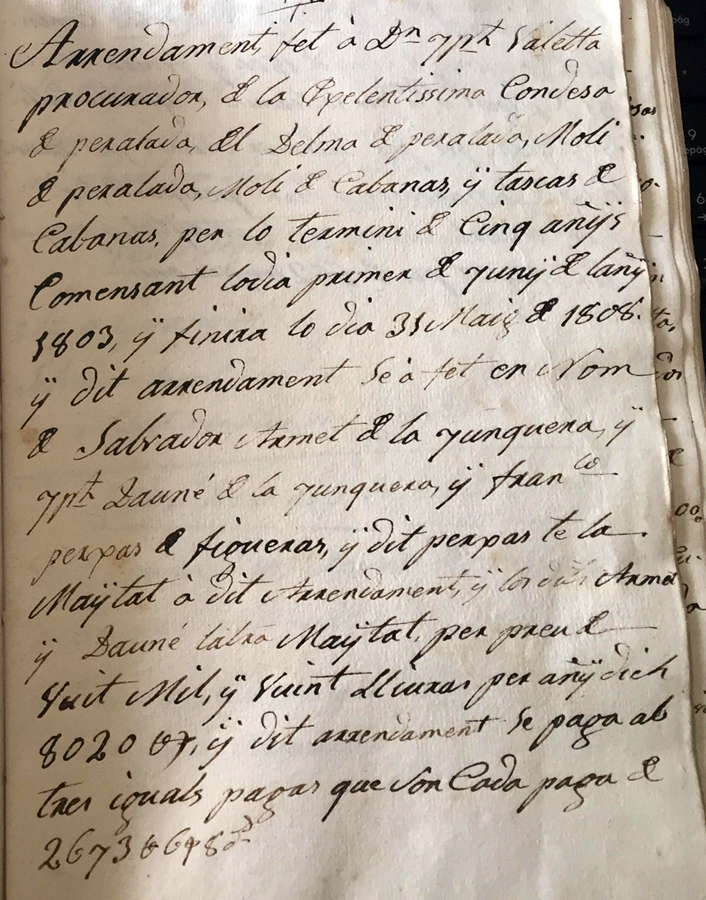 Arrendament, fet à Dn Jph Valetta
procurador, de la Exelentissima Condesa
de peralada, del Delma de peralada, Moli
de peralada, Moli de Cabanas, ÿ tascas de
Cabanas, per lo termini de Cinq añÿs
Comensant lodia primer de Junÿ de lanÿ
1803, ÿ finira lo dia 31 Maig de 1808.
ÿ dit arrendament Se à fet en Nom
de Salvador Armet de la Junquera, ÿ
Jph Dauné de la Junquera, ÿ Franco
perpas de figueras, ÿ dit perpas te la
Maÿtat à dit Arrendament, ÿ los dits Armet
ÿ Dauné laltra Maÿtat, per preu de
Vuit Mil, ÿ Vuint Lliuras per añÿ dich
8020 ÿ dit arrendament Se paga ab
tres iguals pagas que Son Cada paga de
2673